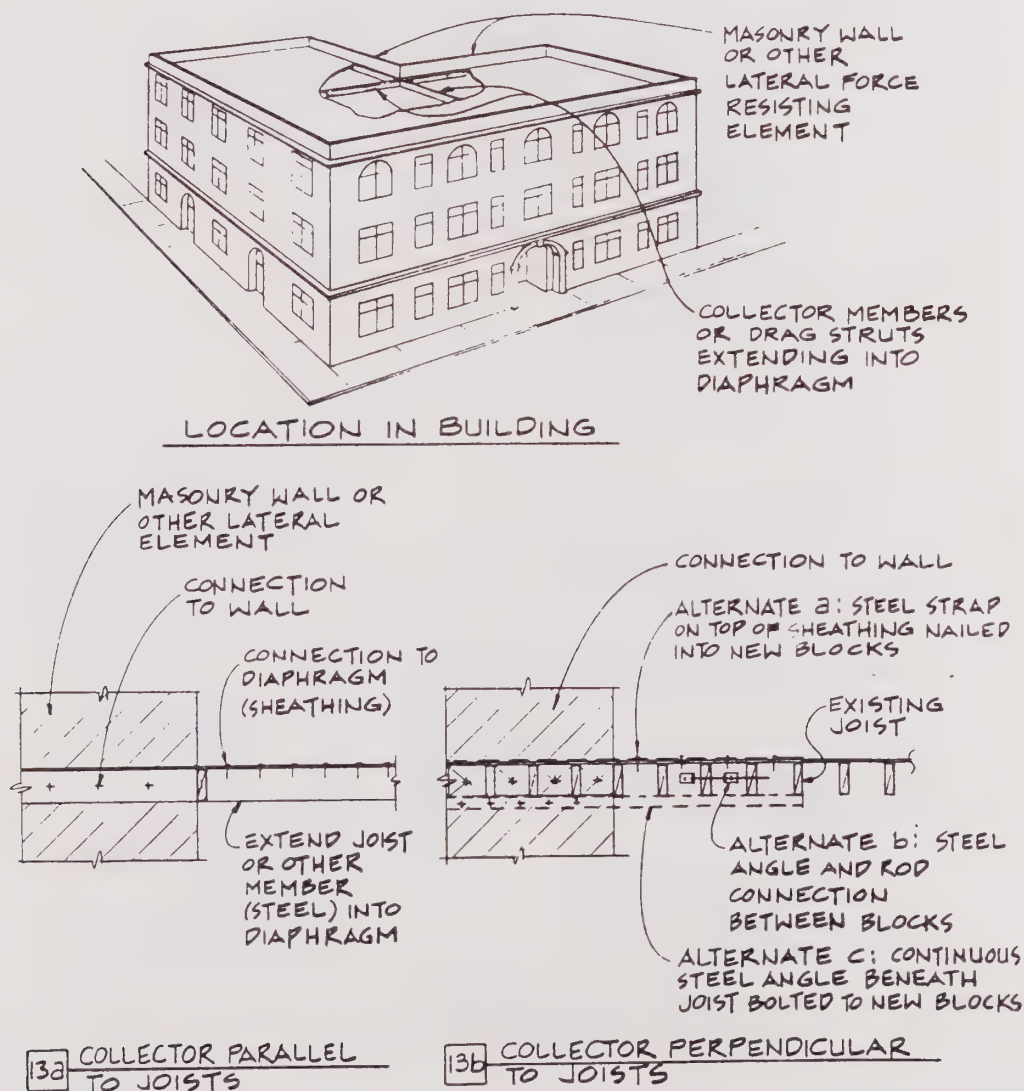 MASONRY WALL
OR OTHER
LATERAL FORCE
RESISTING
ELEMENT
COLLECTOR MEMBERS
OR DRAG STRUTS
EXTENDING INTO
DIAPHRAGM
LOCATION IN BUILDING
MASONRY WALL OR
OTHER LATERAL
ELEMENT
CONNECTION
TO WALL
CONNECTION TO
DIAPHRAGM
(SHEATHING)
EXTEND JOIST
OR OTHER
MEMBER
(STEEL) INTO
DIAPHRAGM
13a COLLECTOR PARALLEL
TO JOISTS
CONNECTION TO WALL
ALTERNATE a: STEEL STRAP
ON TOP OF SHEATHING NAILED
INTO NEW BLOCKS
EXISTING
JOIST
ALTERNATE b: STEEL
ANGLE AND ROD
CONNECTION
BETWEEN BLOCKS
ALTERNATE c: CONTINUOUS
STEEL ANGLE BENEATH
JOIST BOLTED TO NEW BLOCKS
13b COLLECTOR PERPENDICULAR
TO JOISTS